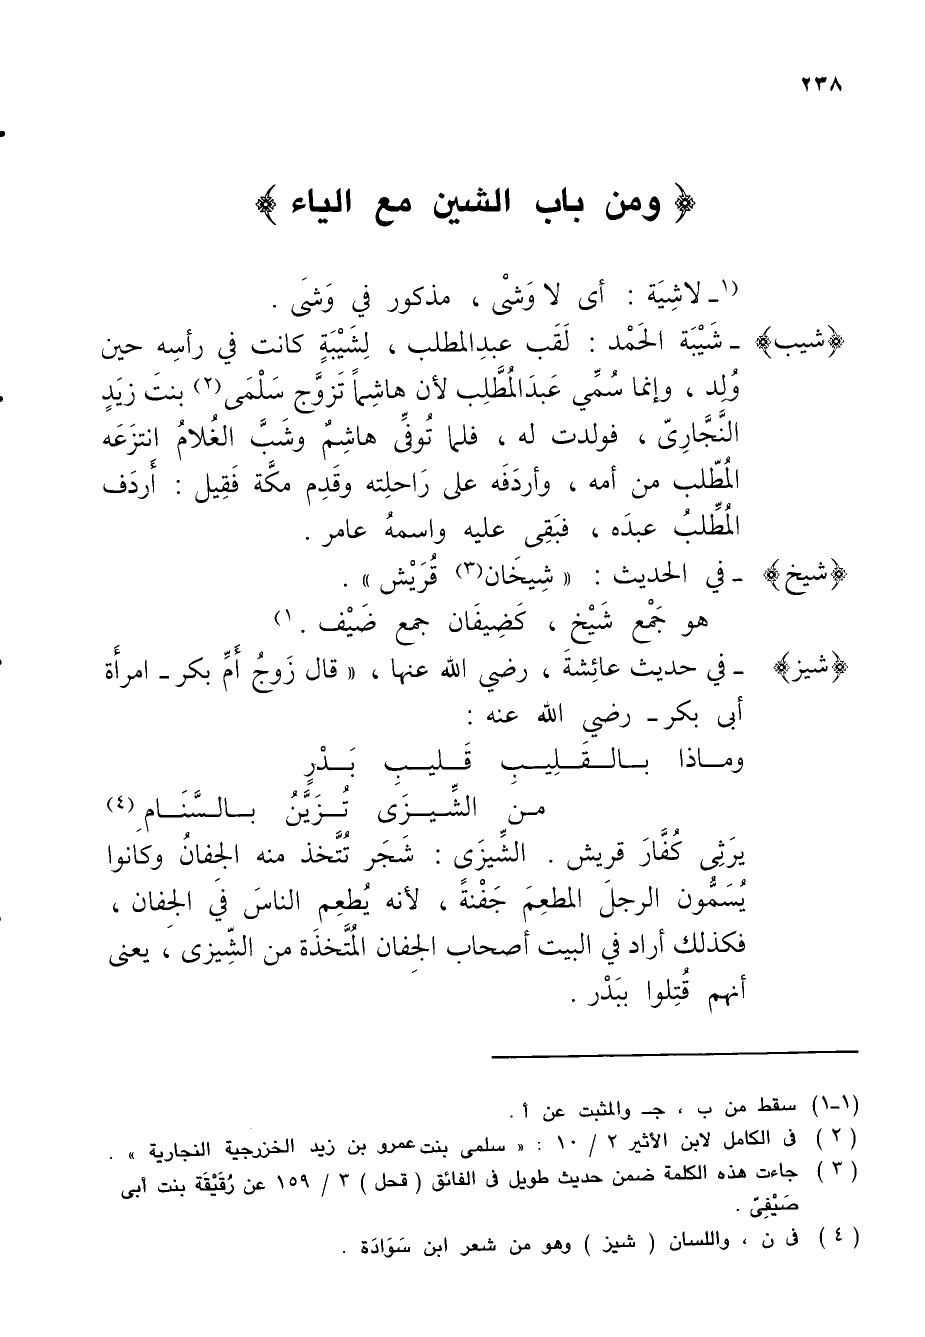 ٢٣٨
﴿ ومن باب الشين مع الياء ﴾
(١ـ لاشِيَة : أى لا وَشْى ، مذكور في وَشَى .
﴿شيب﴾ ـ شَيْبَة الحَمْد : لَقَب عبدِالمطلب ، لِشَيْبَةٍ كانت في رأسِه حين
وُلِد ، وإنما سُمِّي عَبدَالمُطَّلِب لأن هاشِماً تَزوَّج سَلْمَى(٢) بنتَ زيَدٍ
النَّجَّارىّ ، فولدت له ، فلما تُوفِّى هاشِمُ وشَبَّ الغُلامُ انتزَعَه
المُطّلب من أمه ، وأردَفَه على رَاحلِته وقَدِم مكَّة فَقِيل : أَردَف
المُطَّلِبُ عبدَه ، فبَقِى عليه واسمهُ عامر .
﴿شيخ﴾ ـ في الحديث : « شِيخَان(٣) قُرَيْش » .
هو جَمْع شَيْخ ، كَضِيفَان جمع ضَيْف . ١)
﴿شيز﴾ ـ في حديث عائِشةَ ، رضي الله عنها ، « قال زَوجُ أُمِّ بكر ـ امرأة
أبى بكر ـ رضي الله عنه :
ومـاذا بـالـقَـلِيـبِ قَـلـيبِ بَـدْرٍ
مـن الشِّيـزَى تُـزَيَّنُ بـالـسَّنَـامِ (٤)
يرَثِى كُفَّارَ قريش . الشِّيزَى : شَجَر تُتَّخذ منه الجِفانُ وكانوا
يُسَمُّون الرجلَ المطعِمَ جَفْنةً ، لأنه يُطعِم الناسَ في الجِفان ،
فكذلك أراد في البيت أصحاب الجِفان المُتَّخذَة من الشِّيزى ، يعنى
أنهم قُتِلوا ببَدْر .
(١-١) سقط من ب ، جـ والمثبت عن أ .
(٢) فى الكامل لابن الأثير ٢ / ١٠ : « سلمى بنت عمرو بن زيد الخزرجية النجارية » .
(٣) جاءت هذه الكلمة ضمن حديث طويل فى الفائق ( قحل ) ٣ / ١٥٩ عن رُقَيْقَة بنت أبى
صَيْفِىّ .
(٤) فى ن ، واللسان ( شيز ) وهو من شعر ابن سَوَادَة .